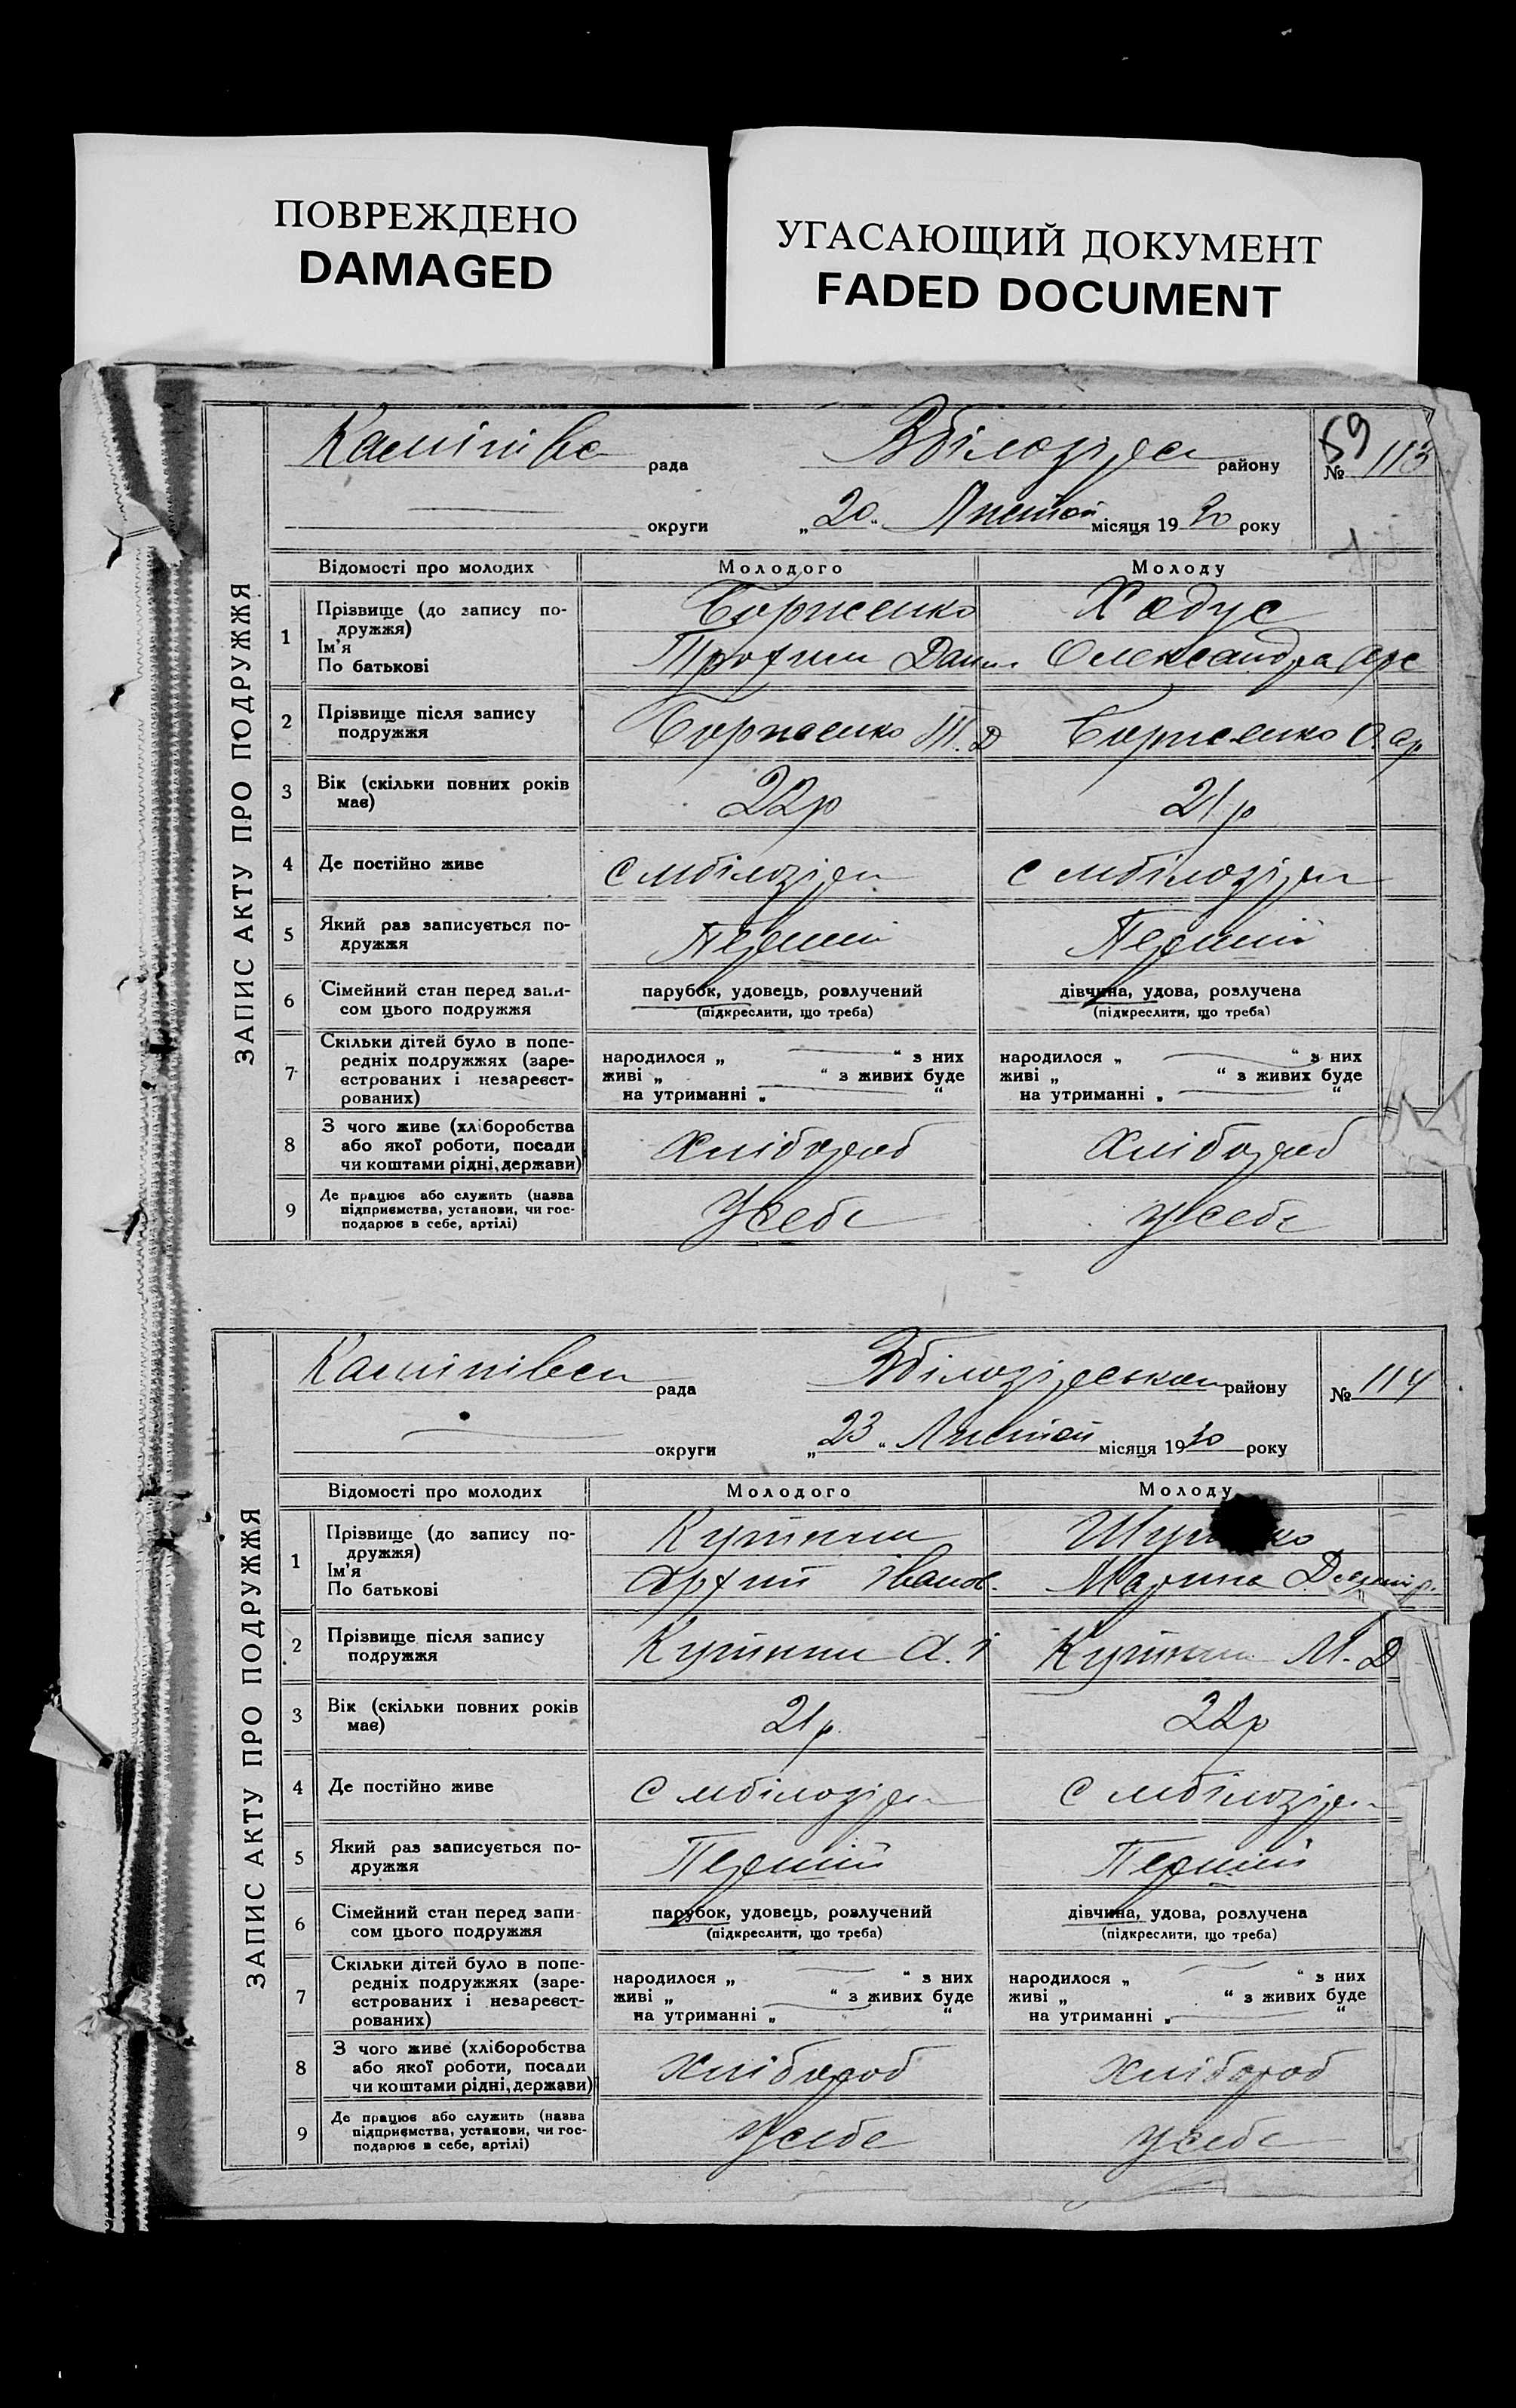 ПОВРЕЖДЕНО
DAMAGED
УГАСАЮЩИЙ ДОКУМЕНТ
FADED DOCUMENT
ЗАПИС АКТУ ПРО ПОДРУЖЖЯ
рада району
59
№ 113
округи „20“ місяця 1930 року
Відомості про молодих Молодого Молоду
1 Прізвище (до запису по-
дружжя)
Ім’я
По батькові
Борисенко Хадус
Трофим Дани Олександра
2 Прізвище після запису
подружжя
Борисенко Т.Д Борисенко О.
3 Вік (скільки повних років
має)
22р 21р
4 Де постійно живе
с мбілозірк с мбілозірк
5 Який раз записується по-
дружжя
Перший Перший
6 Сімейний стан перед запи-
сом цього подружжя
парубок, удовець, розлучений дівчина, удова, розлучена
(підкреслити, що треба) (підкреслити, що треба)
7 Скільки дітей було в попе-
редніх подружжях (заре-
єстрованих і незареєст-
рованих)
народилося „ “ з них народилося „ “ з них
живі „ “ з живих буде живі „ “ з живих буде
на утриманні „ “ на утриманні „ “
8 З чого живе (хліборобства
або якої роботи, посади
чи коштами рідні, держави)
Хлібороб Хлібороб
9 Де працює або служить (назва
підприємства, установи, чи гос-
подарює в себе, артілі)
У себе У себе
ЗАПИС АКТУ ПРО ПОДРУЖЖЯ
рада району № 114
округи „23“ місяця 1930 року
Відомості про молодих Молодого Молоду
1 Прізвище (до запису по-
дружжя)
Ім’я
По батькові
Івано. Марина
2 Прізвище після запису
подружжя
А.І М.Д
3 Вік (скільки повних років
має)
21р. 22р
4 Де постійно живе
с мбілозірк с мбілозірк
5 Який раз записується по-
дружжя
Перший Перший
6 Сімейний стан перед запи-
сом цього подружжя
парубок, удовець, розлучений дівчина, удова, розлучена
(підкреслити, що треба) (підкреслити, що треба)
7 Скільки дітей було в попе-
редніх подружжях (заре-
єстрованих і незареєст-
рованих)
народилося „ “ з них народилося „ “ з них
живі „ “ з живих буде живі „ “ з живих буде
на утриманні „ “ на утриманні „ “
8 З чого живе (хліборобства
або якої роботи, посади
чи коштами рідні, держави)
Хлібороб Хлібороб
9 Де працює або служить (назва
підприємства, установи, чи гос-
подарює в себе, артілі)
У себе У себе